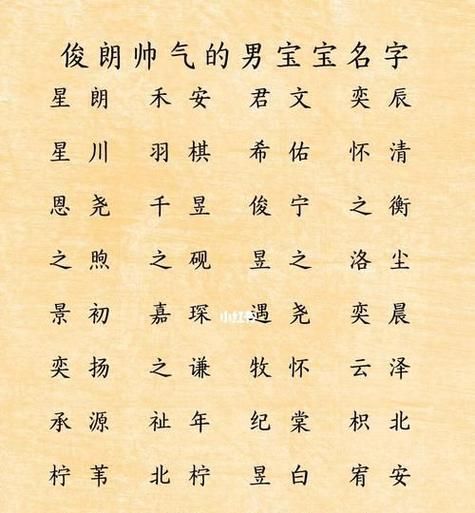 俊朗帅气的男宝宝名字
星朗 禾安 君文 奕辰
星川 羽棋 希佑 怀清
恩尧 千昱 俊宁 之衡
之煦 之砚 昱之 洛尘
景初 嘉琛 遇尧 奕晨
小红书
奕扬 之谦 牧怀 云泽
承源 祉年 纪棠 枳北
柠苇 北柠 昱白 宥安